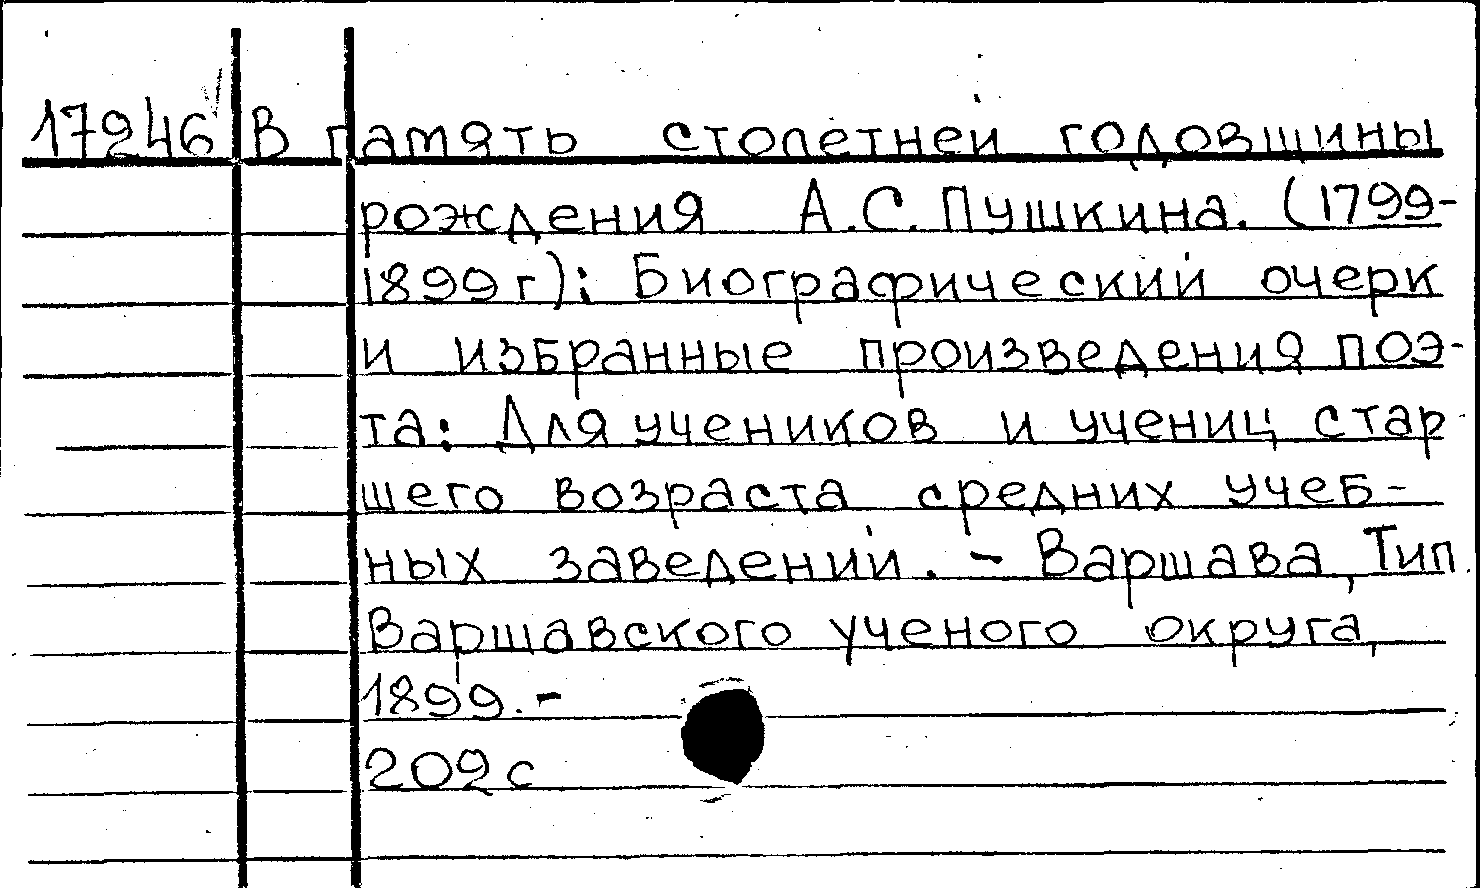 17246 В память столетней годовщины
рождения А.С. Пушкина. (1799-
1899 г): Биографический очерк
и избранные произведения поэ-
та: Для учеников и учениц стар-
шего возраста средних учеб-
ных заведений. - Варшава, Тип.
Варшавского ученого округа,
1899. -
202 с